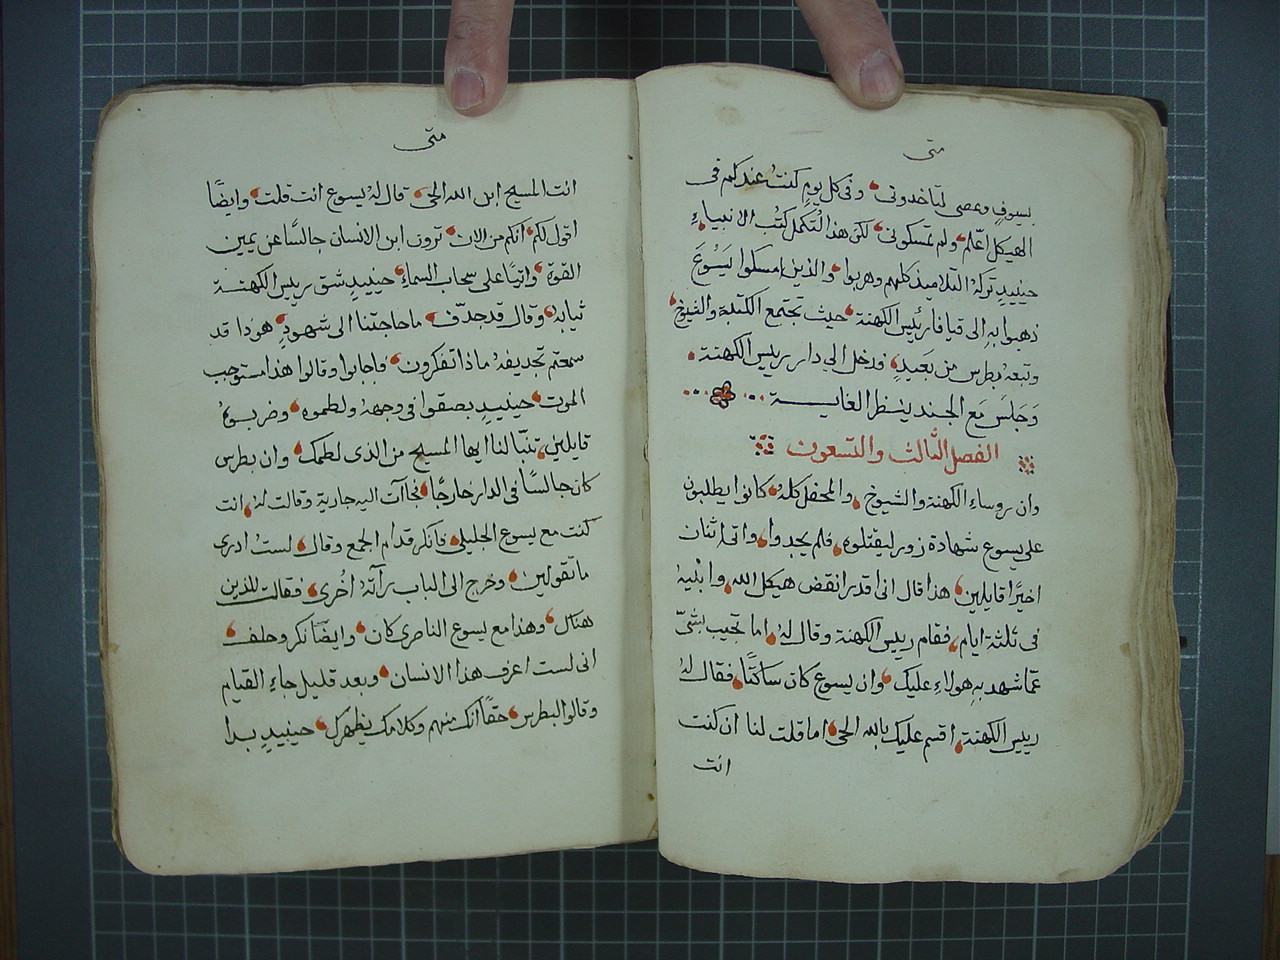 متى
بسيوف وعصى لتاخدونى وفى كل يوم كنت عندكم فى
الهيكل اعلم ولم تمسكونى لكن هذا لتكمل كتب الانبياء
حينيد تركه التلاميذ كلهم وهربوا والذين امسكوا يسوع
ذهبوا به الى قيافا رئيس الكهنة حيث تجتمع الكتبة والشيوخ
وتبعه بطرس من بعيد ودخل الى دار رييس الكهنة
وجلس مع الجند ينظر الغاية
الفصل الثالث والتسعون
وان روساء الكهنة والشيوخ والمحفل كله كانوا يطلبون
على يسوع شهادة زور ليقتلوه فلم يجدوا واتى اثنان
اخيرًا قايلين هذا قال انى اقدر انقض هيكل الله وابنيه
فى ثلثة ايام فقام رييس الكهنة وقال له اما تجيب بشئ
عما شهد به هولاء عليك وان يسوع كان ساكتًا فقال له
رييس الكهنة اقسم عليك بالله الحى اما قلت لنا ان كنت
انت
متى
انت المسيح ابن الله الحى قال له يسوع انت قلت وايضًا
اقول لكم انكم من الان ترون ابن الانسان جالسًا عن يمين
القوة واتيًا على سحاب السماء حينيد شق رييس الكهنة
ثيابه وقال قد جدّف ما حاجتنا الى شهود هوذا قد
سمعتم تجديفه ماذا تفكرون فاجابوا وقالوا هذا مستوجب
الموت حينيد بصقوا فى وجهه ولطموه وضربوه
قايلين تنبّا لنا ايها المسيح من الذى لطمك وان بطرس
كان جالسًا فى الدار خارجًا فجاآت اليه جارية وقالت له انت
كنت مع يسوع الجليلى فانكر قدام الجمع وقال لست ادرى
ما تقولين وخرج الى الباب رآته اخرى فقالت للذين
هناك وهذا مع يسوع الناصرى كان وايضًا نكر وحلف
انى لست اعرف هذا الانسان وبعد قليل جاء القيام
وقالوا لبطرس حقًا انك منهم وكلامك يظهرك حينيد بدا